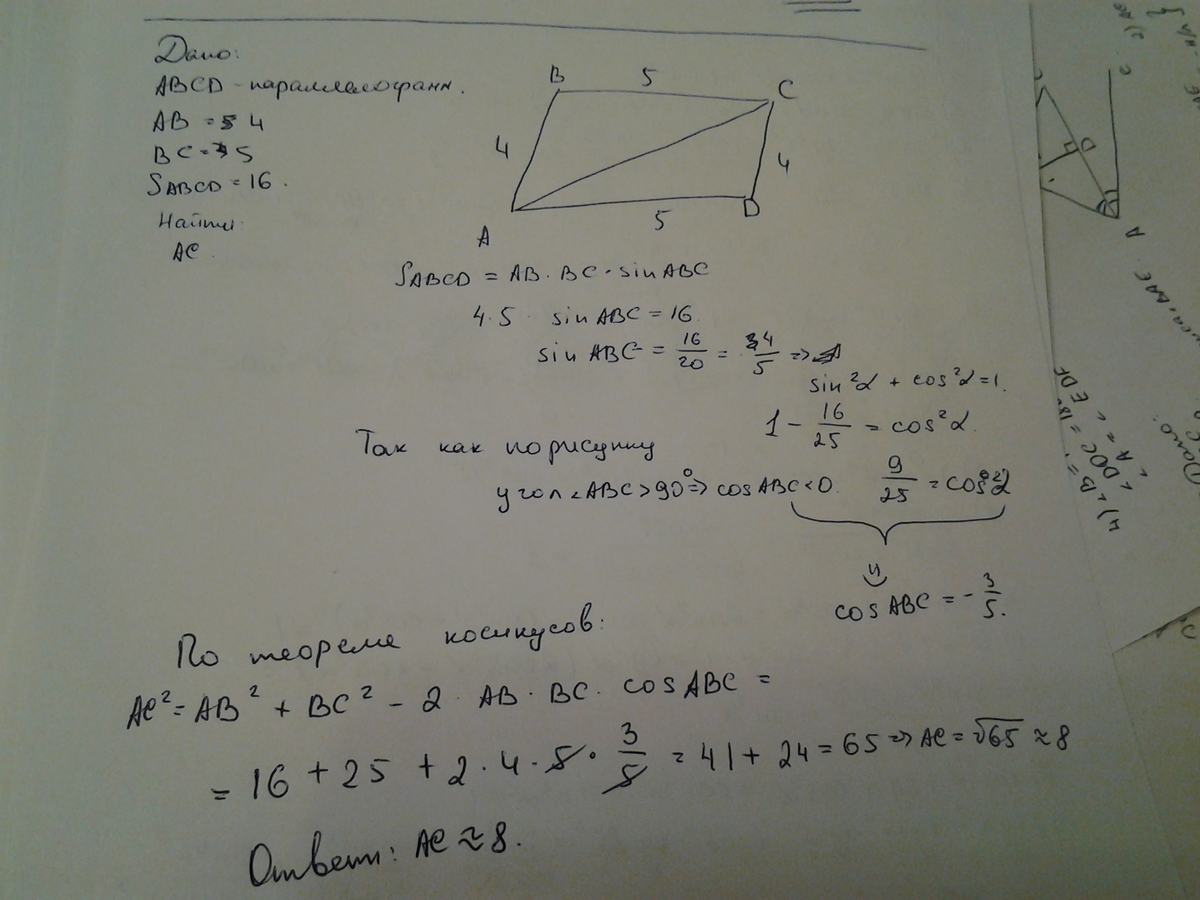 Дано:
ABCD - параллелограмм.
AB = 4
BC = 5
SABCD = 16.
Найти:
AC.
B 5 C
4 4
A 5 D
SABCD = AB · BC · sin ABC
4·5 · sin ABC = 16
sin ABC = 16/20 = 4/5 =>
sin²α + cos²α = 1.
1 - 16/25 = cos²α.
Так как по рисунку
угол <ABC > 90° => cos ABC < 0. 9/25 = cos²α
cos ABC = - 3/5.
По теореме косинусов:
AC² = AB² + BC² - 2 · AB · BC · cos ABC =
= 16 + 25 + 2 · 4 · 5 · 3/5 = 41 + 24 = 65 => AC = √65 ≈ 8
Ответ: AC ≈ 8.
C
D
A
4) <B =
<DOC = 
<A = < EDF
Дано: